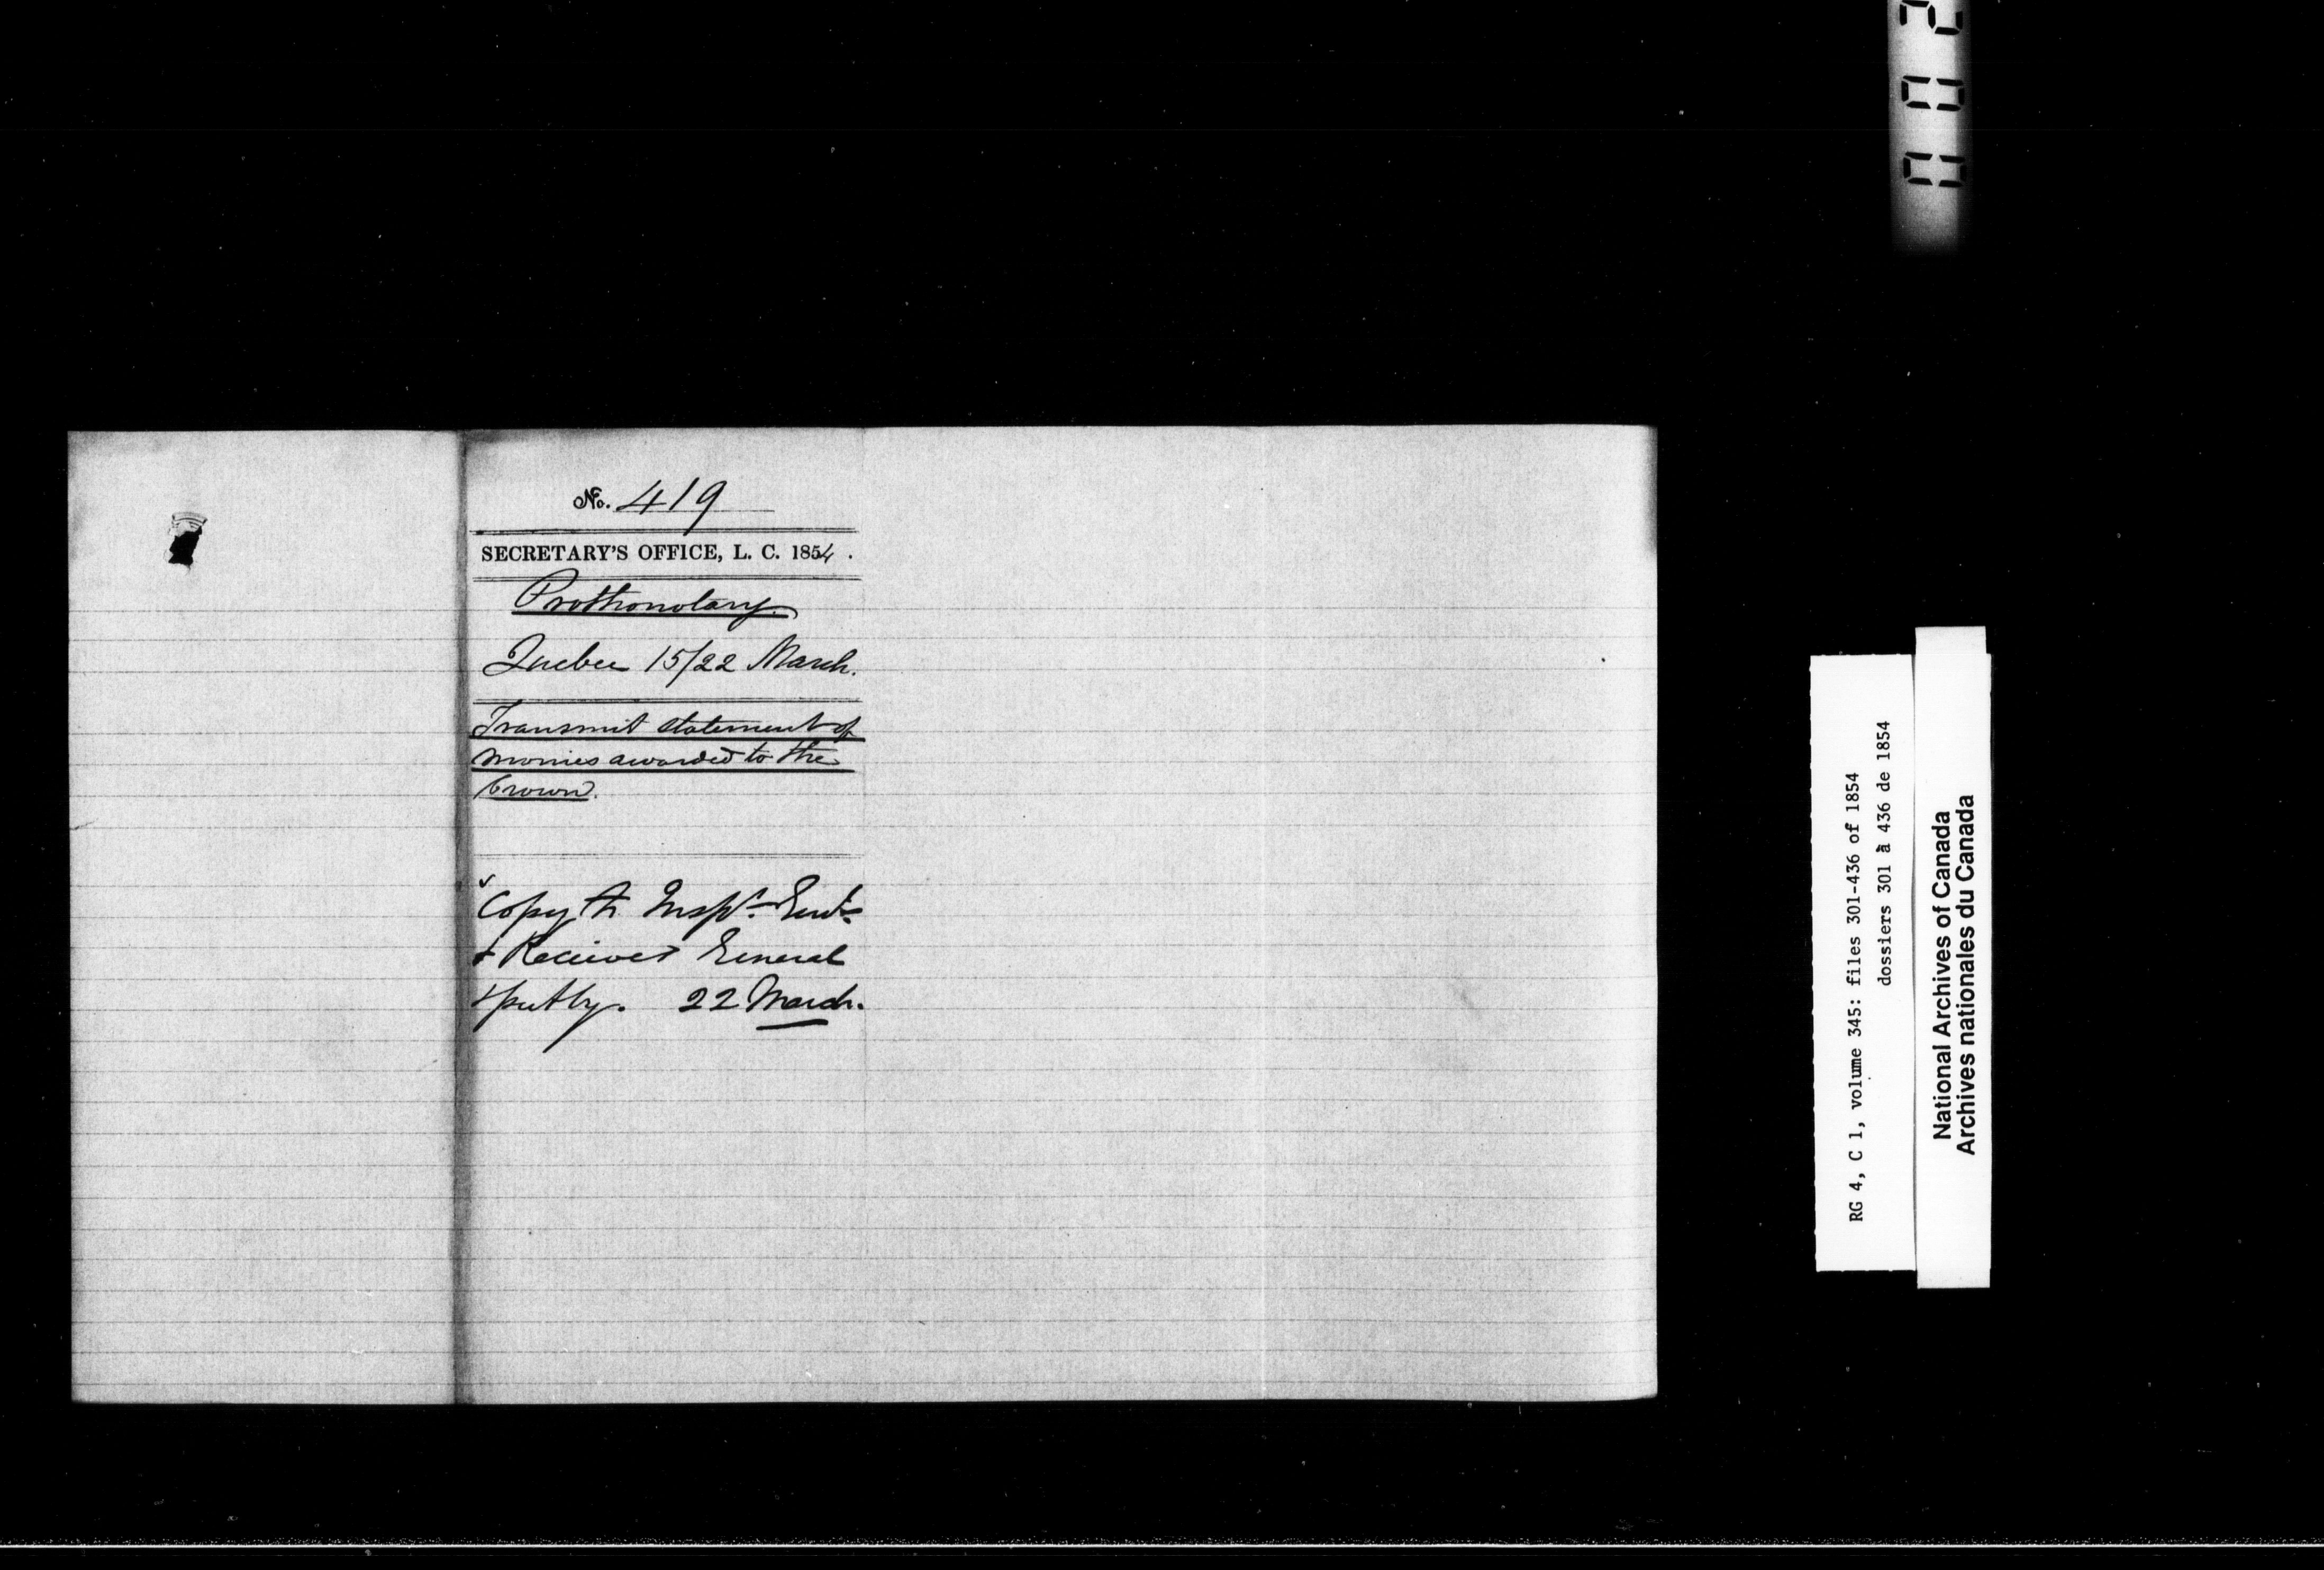 No. 419
SECRETARY'S OFFICE, L. C. 1854.
Prothonotary
Quebec 15/22 March.
Transmit statement of
monies awarded to the
Crown.
Copy to Insp.r Genl.
& Receiver General
22 March.
RG 4, C 1, volume 345: files 301-436 of 1854
dossiers 301 à 436 de 1854
National Archives of Canada
Archives nationales du Canada